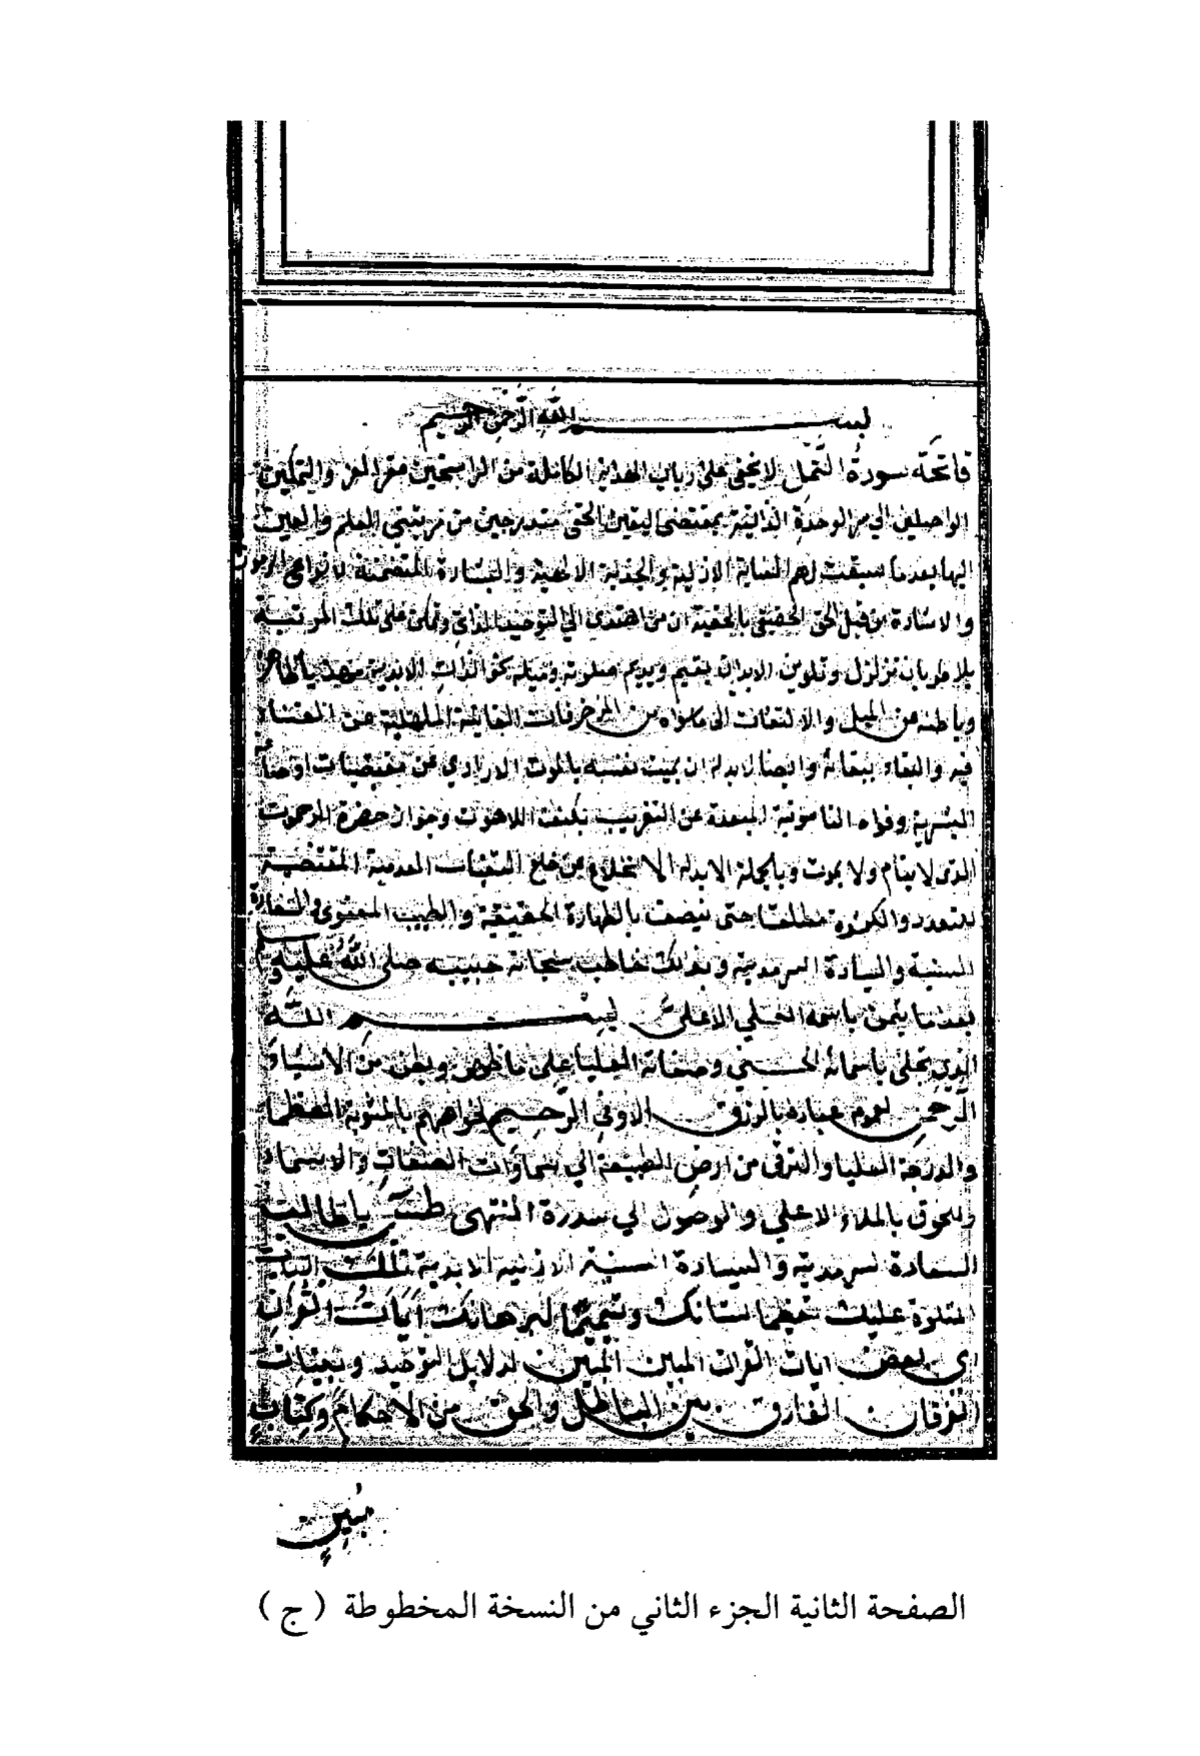 بسم الله الرحمن الرحيم
فاتحة سورة النمل لا يخفى على ارباب الكاملة من الراسخين مقر العز والتمكين
الواصلين الى الوحدة الذاتية بمقتضى اليقين الحقى متدرجين من مرتبتي العلم والعين
اليها بعدما سبقت لهم العناية الازلية والجذبة الالهية والبشارة المتضمنة لانواع
والاشارة من قبل الحق الحقيقي بالحقية ان من اهتدى الي التوحيد الذاتي وتمكن على تلك المرتبة
بلا طريان تزلزل وتلوين لابد ان يقيم ويديم نحو الذات الابدية
وباطنه عن الميل والالتفات الى ما سواه من المزخرفات الفانية الملهية عن الفناء
فيه والبقاء ببقائه وايضا لابد له ان يميت نفسه بالموت الارادي عن مقتضيات اوصاف
البشرية وقواه الناسوتية المبعدة عن التقريب بكنف اللاهوت وجوار حضرة الرحموت
الذى لا ينام ولا يموت وبالجملة لابد له الانخلاع من خلع التعينات العدمية المقتضية
للتعدد والكثرة مطلقا حتى يتصف بالطهارة الحقيقية والطيب المعنوى والسعادة
السنية والسيادة السرمدية وبذلك خاطب سبحانه حبيبه صلى الله عليه وسلم
بعدما تيمن باسمه العلي الاعلى بسم الله
الذي تجلى باسمائه الحسنى وصفاته العليا على ما ظهر وبطن من الاشياء
الرحمن لعموم عباده بالرزق الاوفى الرحيم لخواصهم بالمثوبة العظمى
والدرجة العليا والترقى من ارض الطبيعة الي سماوات الصفات والاسماء
واللحوق بالملاء الاعلى والوصول الي سدرة المنتهى طس يا طالب
السعادة السرمدية والسيادة السنية الازلية الابدية تلك الآيات
المتلوة عليك تعظيما لشانك وتتميما لبرهانك آيات القرآن
اى بعض ايات القران المبين المبين لدلايل التوحيد وبينات
الفرقان الفارق بين الباطل والحق من الاحكام وكتاب
مبين
الصفحة الثانية الجزء الثاني من النسخة المخطوطة ( ج )